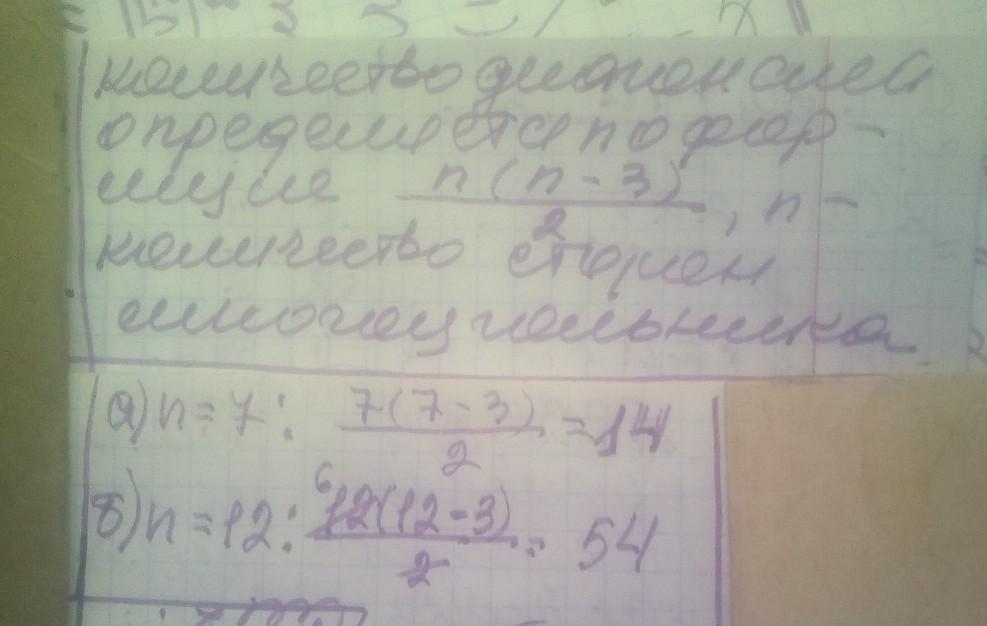 количество диагоналей
определяется по фор-
муле n(n-3)/2, n-
количество сторон
многоугольника
а) n=7: 7(7-3)/2 =14
б) n=12: 6 12(12-3)/2 = 54